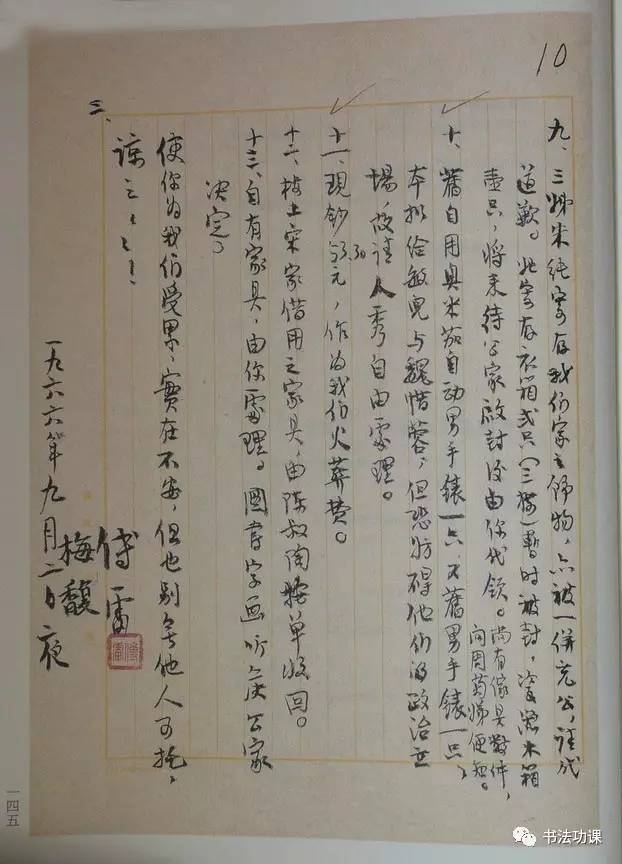 10
九、三姊朱纯寄存我们家之饰物，亦被一併充公，请代
道歉。她寄存衣箱弍只（三楼）暂时被封，瓷器木箱
壹只，将来待公家启封后由你代领。尚有傢具数件，
问周菊娣便知。
十、舊自用奥米茄自动男手錶一只，又舊男手錶一只，
本拟给敏兒与魏惜蓉，但恐妨碍他们的政治立
場，故请人秀自由處理。
十一、現鈔53.30元，作为我们火葬费。
十二、楼上宋家借用之家具，由陈叔陶按单收回。
十三、自有家具，由你處理。图書字画听候公家
决定。
使你为我们受累，實在不安，但也别無他人可托，
谅之谅之！
傅雷
梅馥
一九六六年九月二日夜
三、
一四五
书法功课